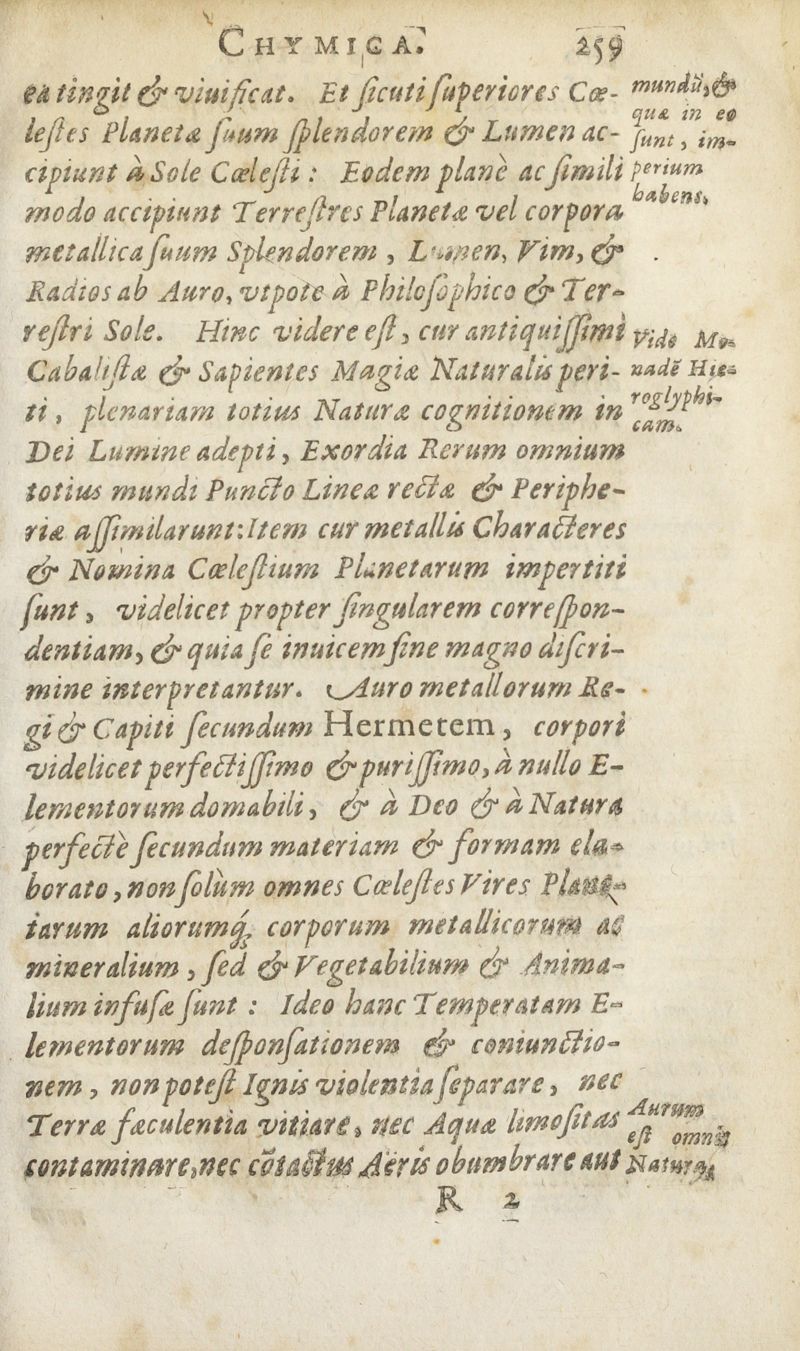 CHYMICA. 259
ea tingit & viuificat. Et ſicuti ſuperiores Cœ-
leſtes Planetæ ſuum ſplendorem & Lumen ac-
cipiunt à Sole Cœleſti : Eodem planè ac ſimili
modo accipiunt Terreſtres Planetæ vel corpora
metallica ſuum Splendorem , Lumen, Vim, &
Radios ab Auro, vtpote à Philoſophico & Ter-
reſtri Sole. Hinc videre eſt, cur antiquiſſimi
Cabaliſtæ & Sapientes Magiæ Naturalis peri-
ti , plenariam totius Naturæ cognitionem in
Dei Lumine adepti , Exordia Rerum omnium
totius mundi Puncto Lineæ rectæ & Periphe-
riæ aſſimilarunt: Item cur metallis Characteres
& Nomina Cœleſtium Planetarum impertiti
ſunt , videlicet propter ſingularem correſpon-
dentiam, & quia ſe inuicem ſine magno diſcri-
mine interpretantur. Auro metallorum Re-
gi & Capiti ſecundum Hermetem , corpori
videlicet perfectiſſimo & puriſſimo, à nullo E-
lementorum domabili , & à Deo & à Natura
perfectè ſecundum materiam & formam ela-
borato , non ſolùm omnes Cœleſtes Vires Plane-
tarum aliorumq́; corporum metallicorum ac
mineralium , ſed & Vegetabilium & Anima-
lium infuſæ ſunt : Ideo hanc Temperatam E-
lementorum deſponſationem & coniunctio-
nem , non poteſt Ignis violentia ſeparare , nec
Terræ fæculentia vitiare, nec Aquæ limoſitas
contaminare, nec cõtactus Aëris obumbrare aut
R 2
mundũ, &
quæ in eo
ſunt , im-
perium
habens,
Vide Mo-
nadẽ Hie-
roglyphi-
cam.
Aurum
eſt omnis
Naturæ